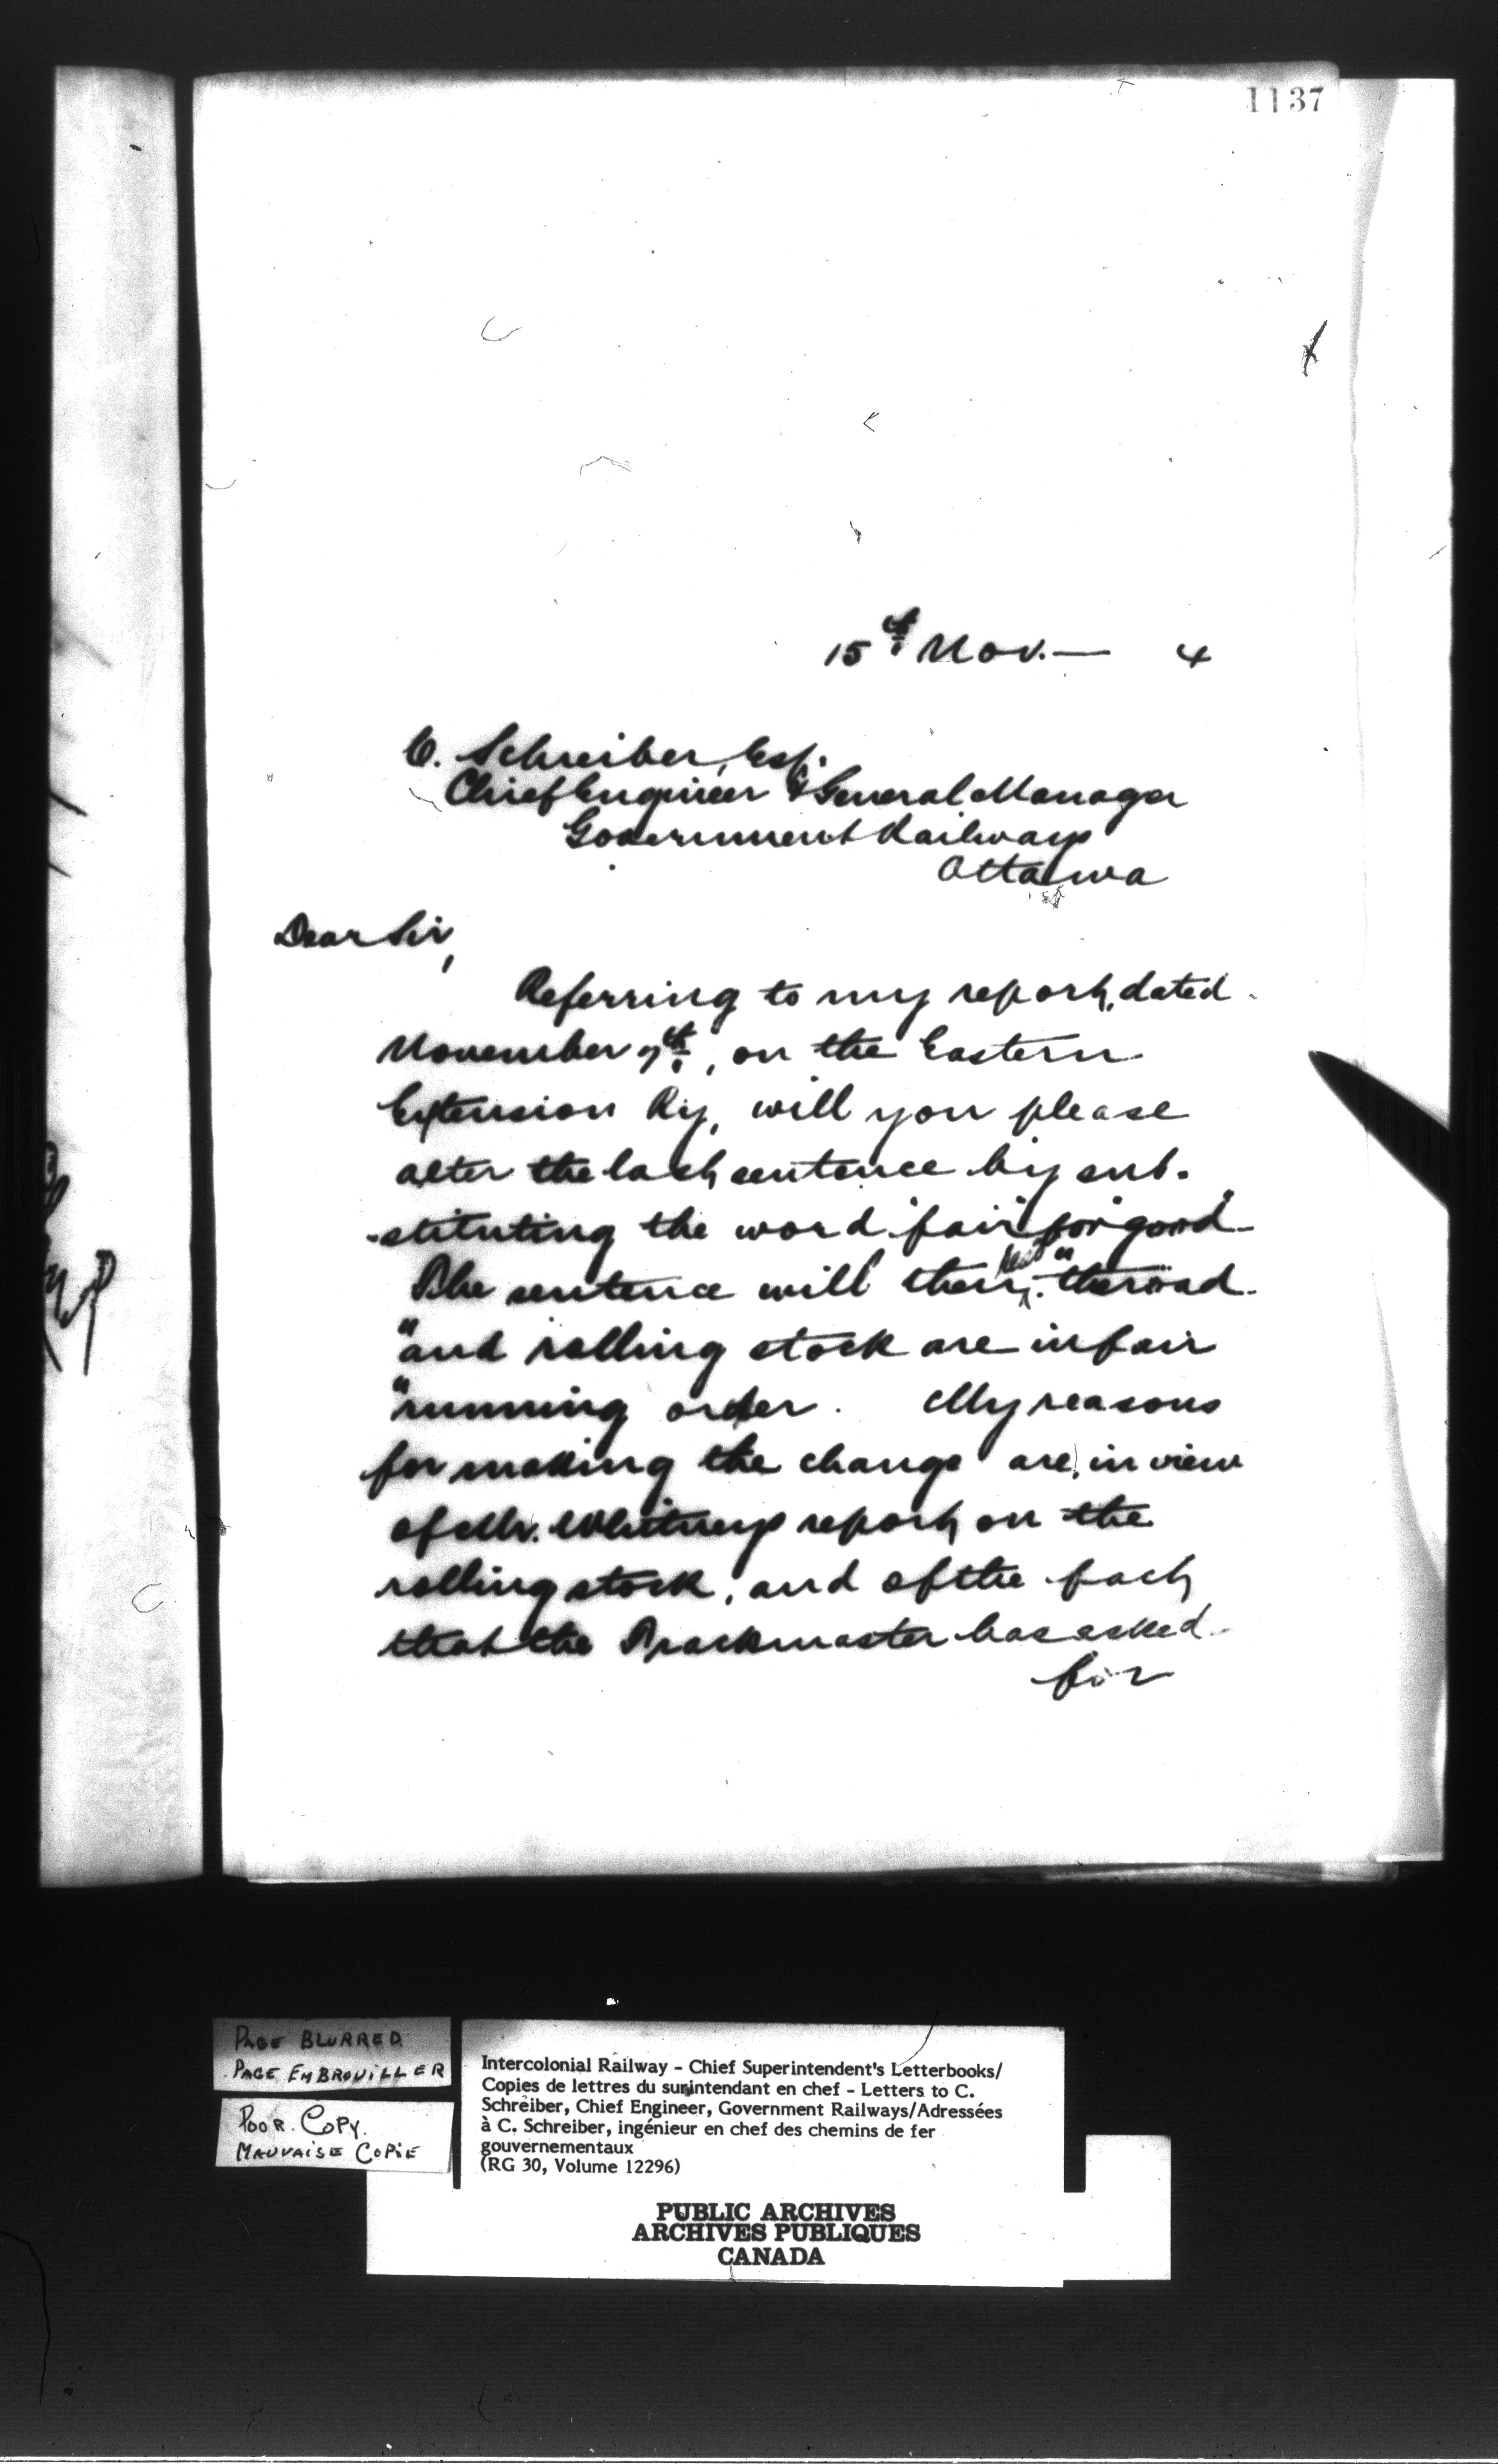 1137
15th Nov. — 4
C. Schreiber, Esq.
Chief Engineer & General Manager
Government Railways
Ottawa
Dear Sir,
Referring to my report, dated
November 7th, on the Eastern
Extension Ry, will you please
alter the last sentence by sub-
-stituting the word "fair" for "good"
The sentence will then "the road
"and rolling stock are in fair
"running order. My reasons
for making the change are, in view
of Mr. Whitneys report, on the
rolling stock, and of the fact
that the Trackmaster has asked
for
PAGE BLURRED
PAGE EMBROUILLER
POOR COPY.
MAUVAISE COPIE
Intercolonial Railway - Chief Superintendent's Letterbooks/
Copies de lettres du surintendant en chef - Letters to C.
Schreiber, Chief Engineer, Government Railways/Adressées
à C. Schreiber, ingénieur en chef des chemins de fer
gouvernementaux
(RG 30, Volume 12296)
PUBLIC ARCHIVES
ARCHIVES PUBLIQUES
CANADA